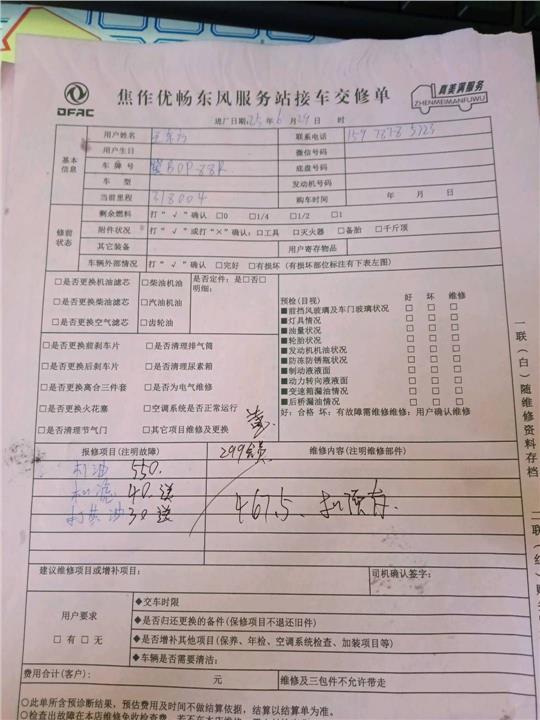 焦作优畅东风服务站接车交修单
DFAC
真美满服务
ZHENMEIMANFUWU
进厂日期:25年6月29日 时
基本信息
用户姓名 联系电话
用户生日 微信号码
车牌号 底盘号码
车 型 发动机号码
当前里程 318004 购车时间 年 月 日
修前状态
剩余燃料 打“√”确认 □0 □1/4 □1/2 □1
附件状况 打“√”或打“×”确认:□工具 □灭火器 □备胎 □千斤顶
其它装备 用户寄存物品
车辆外部情况 打“√”确认 □完好 □有损坏(有损坏部位标注有下表左图)
□是否更换机油滤芯 □柴油机油 是否定件:是□否□
□是否更换柴油滤芯 □汽油机油 明细:
□是否更换空气滤芯 □齿轮油
□是否更换前刹车片 □是否清理排气筒
□是否更换后刹车片 □是否清理尿素箱
□是否更换离合三件套 □是否为电气维修
□是否更换火花塞 □空调系统是否正常运行
□是否清理节气门 □其它项目维修及更换
预检(目视) 好 坏 维修
■前挡风玻璃及车门玻璃状况 □ □ □
■灯具情况 □ □ □
■油量状况 □ □ □
■轮胎状况 □ □ □
■发动机机油状况 □ □ □
■防冻防锈瓶状况 □ □ □
■制动液液面 □ □ □
■动力转向液液面 □ □ □
■变速箱漏油情况 □ □ □
■后桥漏油情况 □ □ □
好:合格 坏:有故障需维修维修:用户确认维修
报修项目(注明故障) 299会员 维修内容(注明维修部件)
机油 550.
机滤 40.送
打黄油 30送
467.5.扣预存.
建议维修项目或增补项目: 司机确认签字:
用户要求
□有 □无
◆交车时限
◆是否归还更换的备件(保修项目不退还旧件)
◆是否增补其他项目(保养、年检、空调系统检查、加装项目等)
◆车辆是否需要清洁:
费用合计(客户): 元 维修及三包件不允许带走
○此单所含预诊断结果,预估费用及时间不做结算依据,结算以结算单为准。
一联(白)随维修资料存档